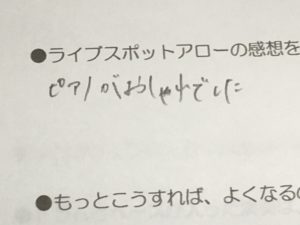 ●ライブスポットアローの感想を
ピアノがおしゃれでした
●もっとこうすれば、よくなるの